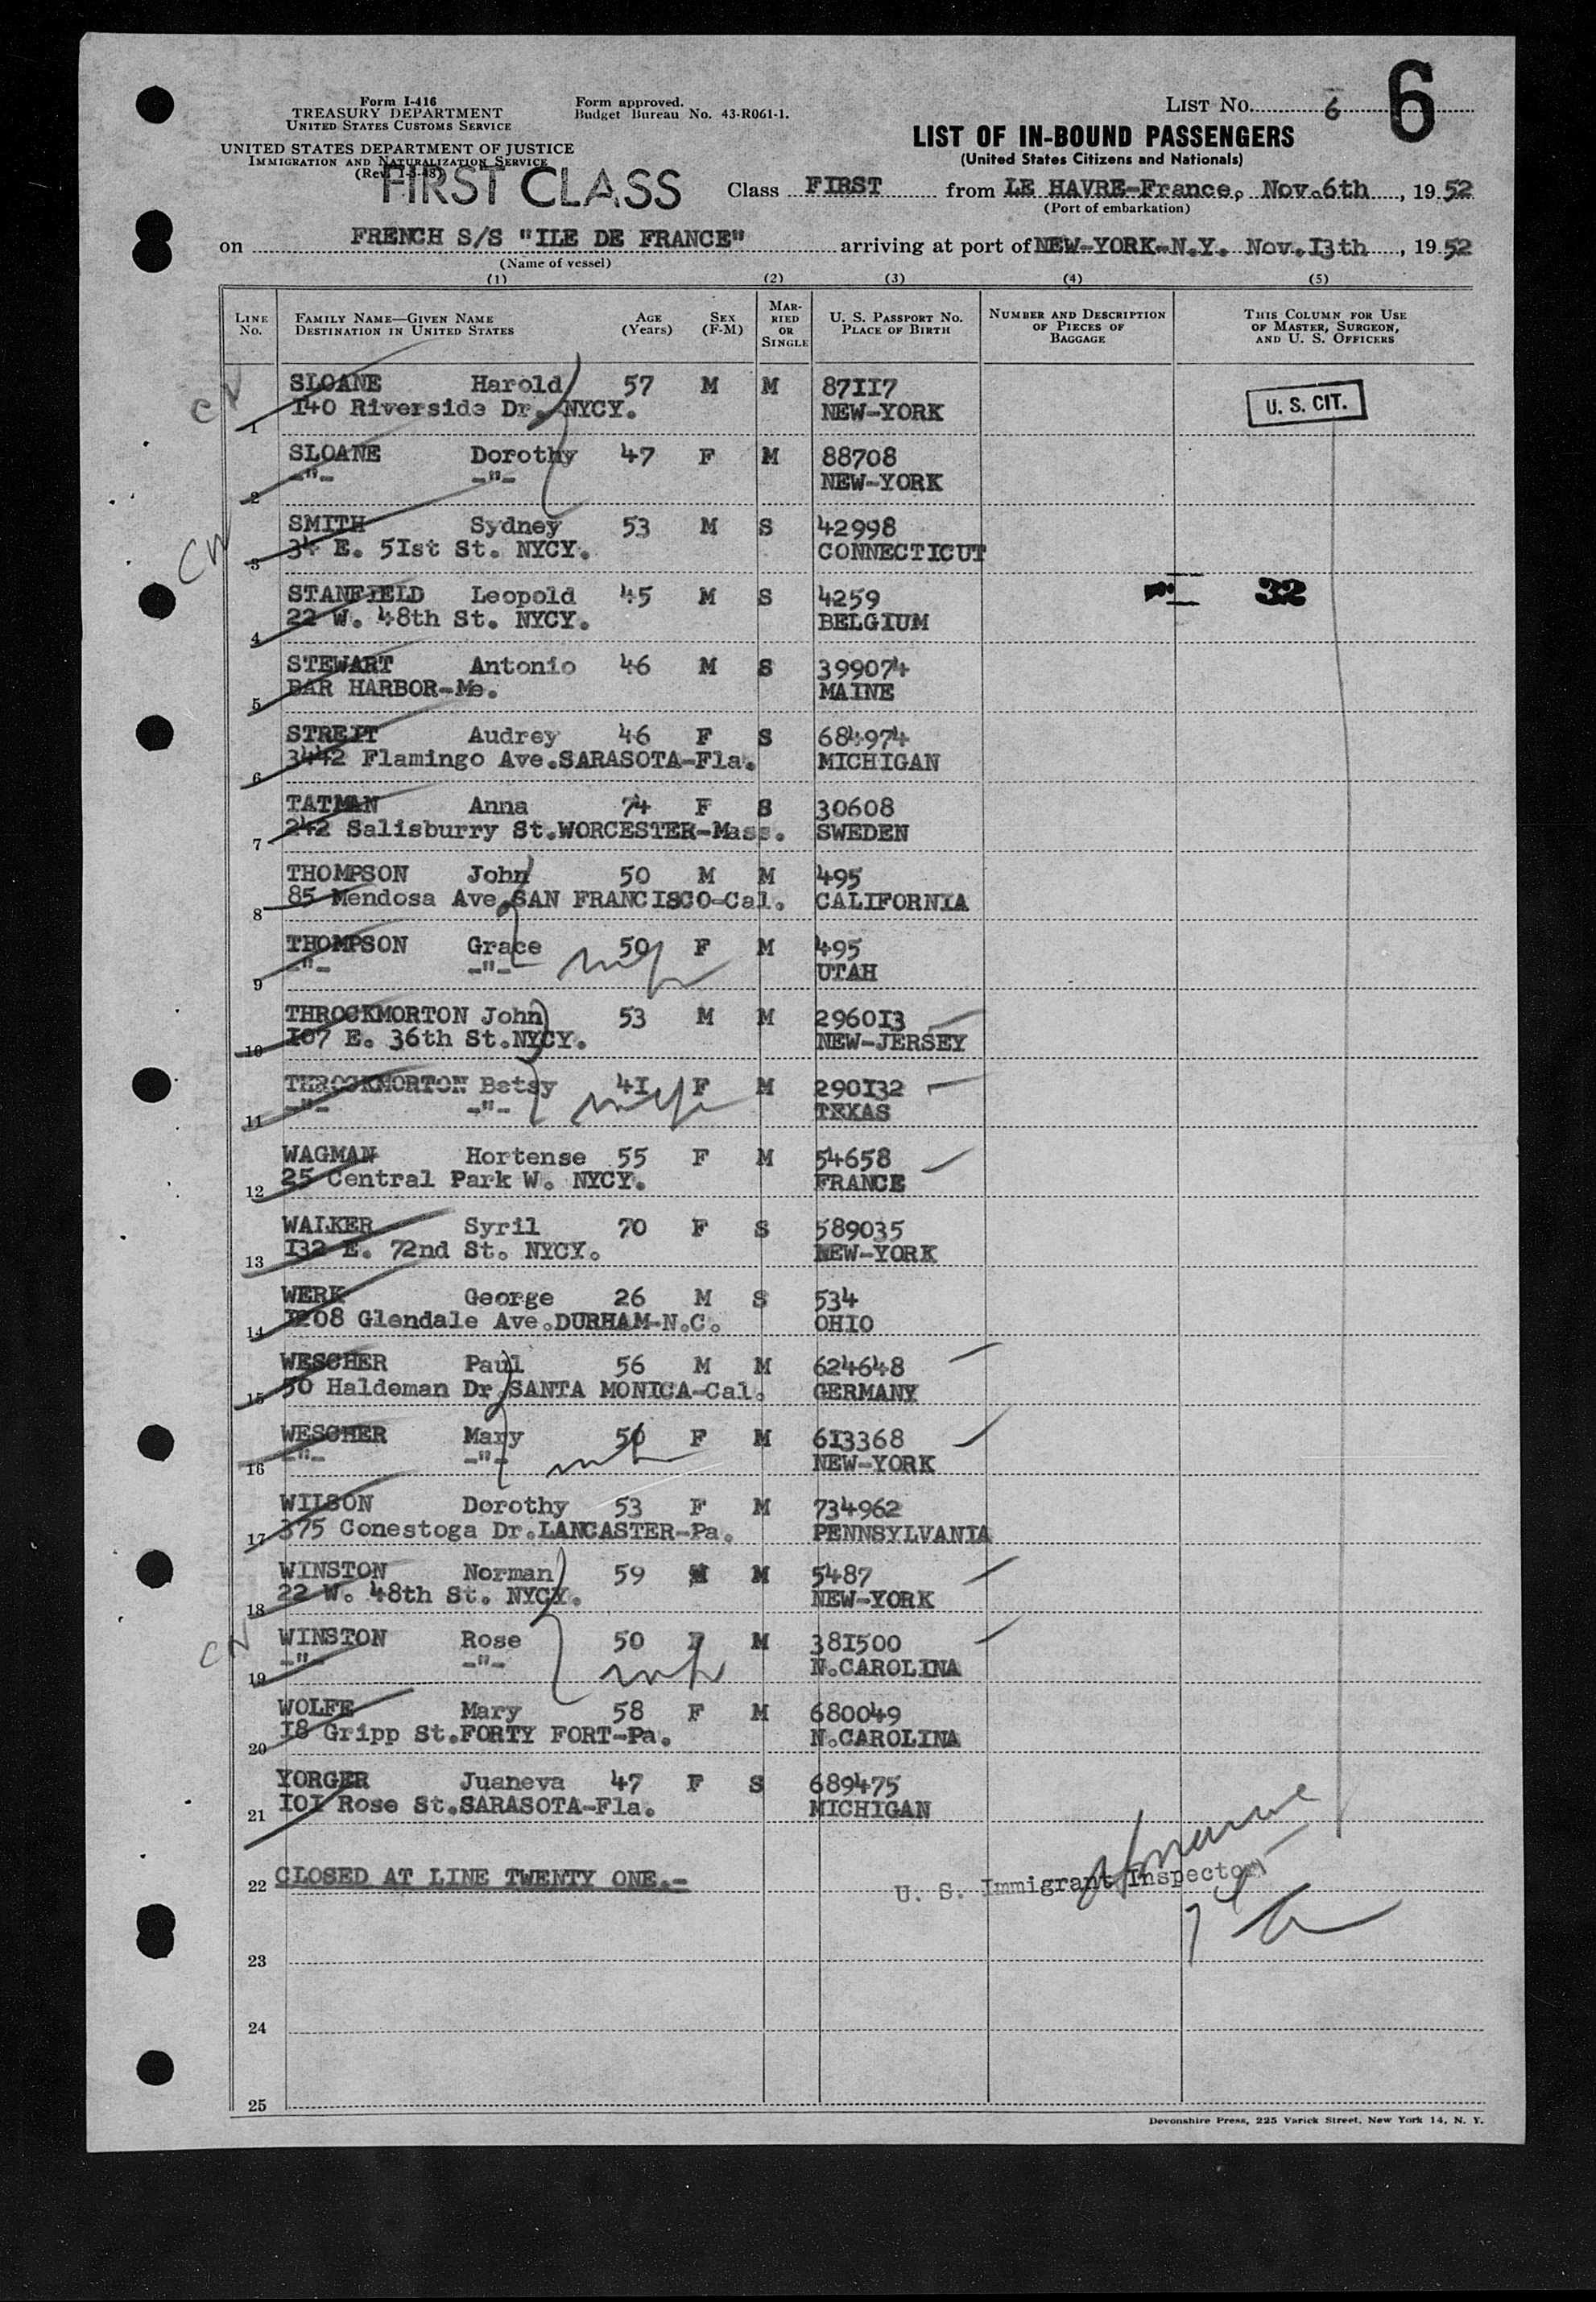 6
Form I-416
TREASURY DEPARTMENT
UNITED STATES CUSTOMS SERVICE
Form approved.
Budget Bureau No. 43-R061-1.
LIST NO. 6
LIST OF IN-BOUND PASSENGERS
(United States Citizens and Nationals)
UNITED STATES DEPARTMENT OF JUSTICE
IMMIGRATION AND NATURALIZATION SERVICE
(Rev. 1-3-48)
FIRST CLASS
Class FIRST from LE HAVRE-France, Nov.6th, 1952
(Port of embarkation)
on FRENCH S/S "ILE DE FRANCE" arriving at port of NEW-YORK-N.Y. Nov.13th, 1952
(Name of vessel)
(1) (2) (3) (4) (5)
LINE No. FAMILY NAME—GIVEN NAME DESTINATION IN UNITED STATES AGE (Years) SEX (F-M) MAR-RIED OR SINGLE U. S. PASSPORT NO. PLACE OF BIRTH NUMBER AND DESCRIPTION OF PIECES OF BAGGAGE THIS COLUMN FOR USE OF MASTER, SURGEON, AND U. S. OFFICERS
SLOANE Harold 57 M M 87117
1 140 Riverside Dr. NYCY. NEW-YORK
U. S. CIT.
SLOANE Dorothy 47 F M 88708
2 -"- -"- NEW-YORK
SMITH Sydney 53 M S 42998
3 34 E. 51st St. NYCY. CONNECTICUT
STANFIELD Leopold 45 M S 4259 32
4 22 W. 48th St. NYCY. BELGIUM
STEWART Antonio 46 M S 399074
5 BAR HARBOR-Me. MAINE
STREIT Audrey 46 F S 684974
6 3442 Flamingo Ave.SARASOTA-Fla. MICHIGAN
TATMAN Anna 74 F S 30608
7 242 Salisburry St.WORCESTER-Mass. SWEDEN
THOMPSON John 50 M M 495
8 85 Mendosa Ave.SAN FRANCISCO-Cal. CALIFORNIA
THOMPSON Grace 50 F M 495
9 -"- -"- UTAH
THROCKMORTON John 53 M M 296013
10 107 E. 36th St.NYCY. NEW-JERSEY
THROCKMORTON Betsy 41 F M 290132
11 -"- -"- TEXAS
WAGMAN Hortense 55 F M 54658
12 25 Central Park W. NYCY. FRANCE
WALKER Syril 70 F S 589035
13 132 E. 72nd St. NYCY. NEW-YORK
WERK George 26 M S 534
14 1208 Glendale Ave.DURHAM-N.C. OHIO
WESCHER Paul 56 M M 624648
15 50 Haldeman Dr.SANTA MONICA-Cal. GERMANY
WESCHER Mary 50 F M 613368
16 -"- -"- NEW-YORK
WILSON Dorothy 53 F M 734962
17 375 Conestoga Dr.LANCASTER-Pa. PENNSYLVANIA
WINSTON Norman 59 M M 5487
18 22 W. 48th St. NYCY. NEW-YORK
WINSTON Rose 50 F M 381500
19 -"- -"- N.CAROLINA
WOLFE Mary 58 F M 680049
20 18 Gripp St.FORTY FORT-Pa. N.CAROLINA
YORGER Juaneva 47 F S 689475
21 101 Rose St.SARASOTA-Fla. MICHIGAN
22 CLOSED AT LINE TWENTY ONE.-
U. S. Immigrant Inspector
23
24
25
Devonshire Press, 225 Varick Street, New York 14, N. Y.